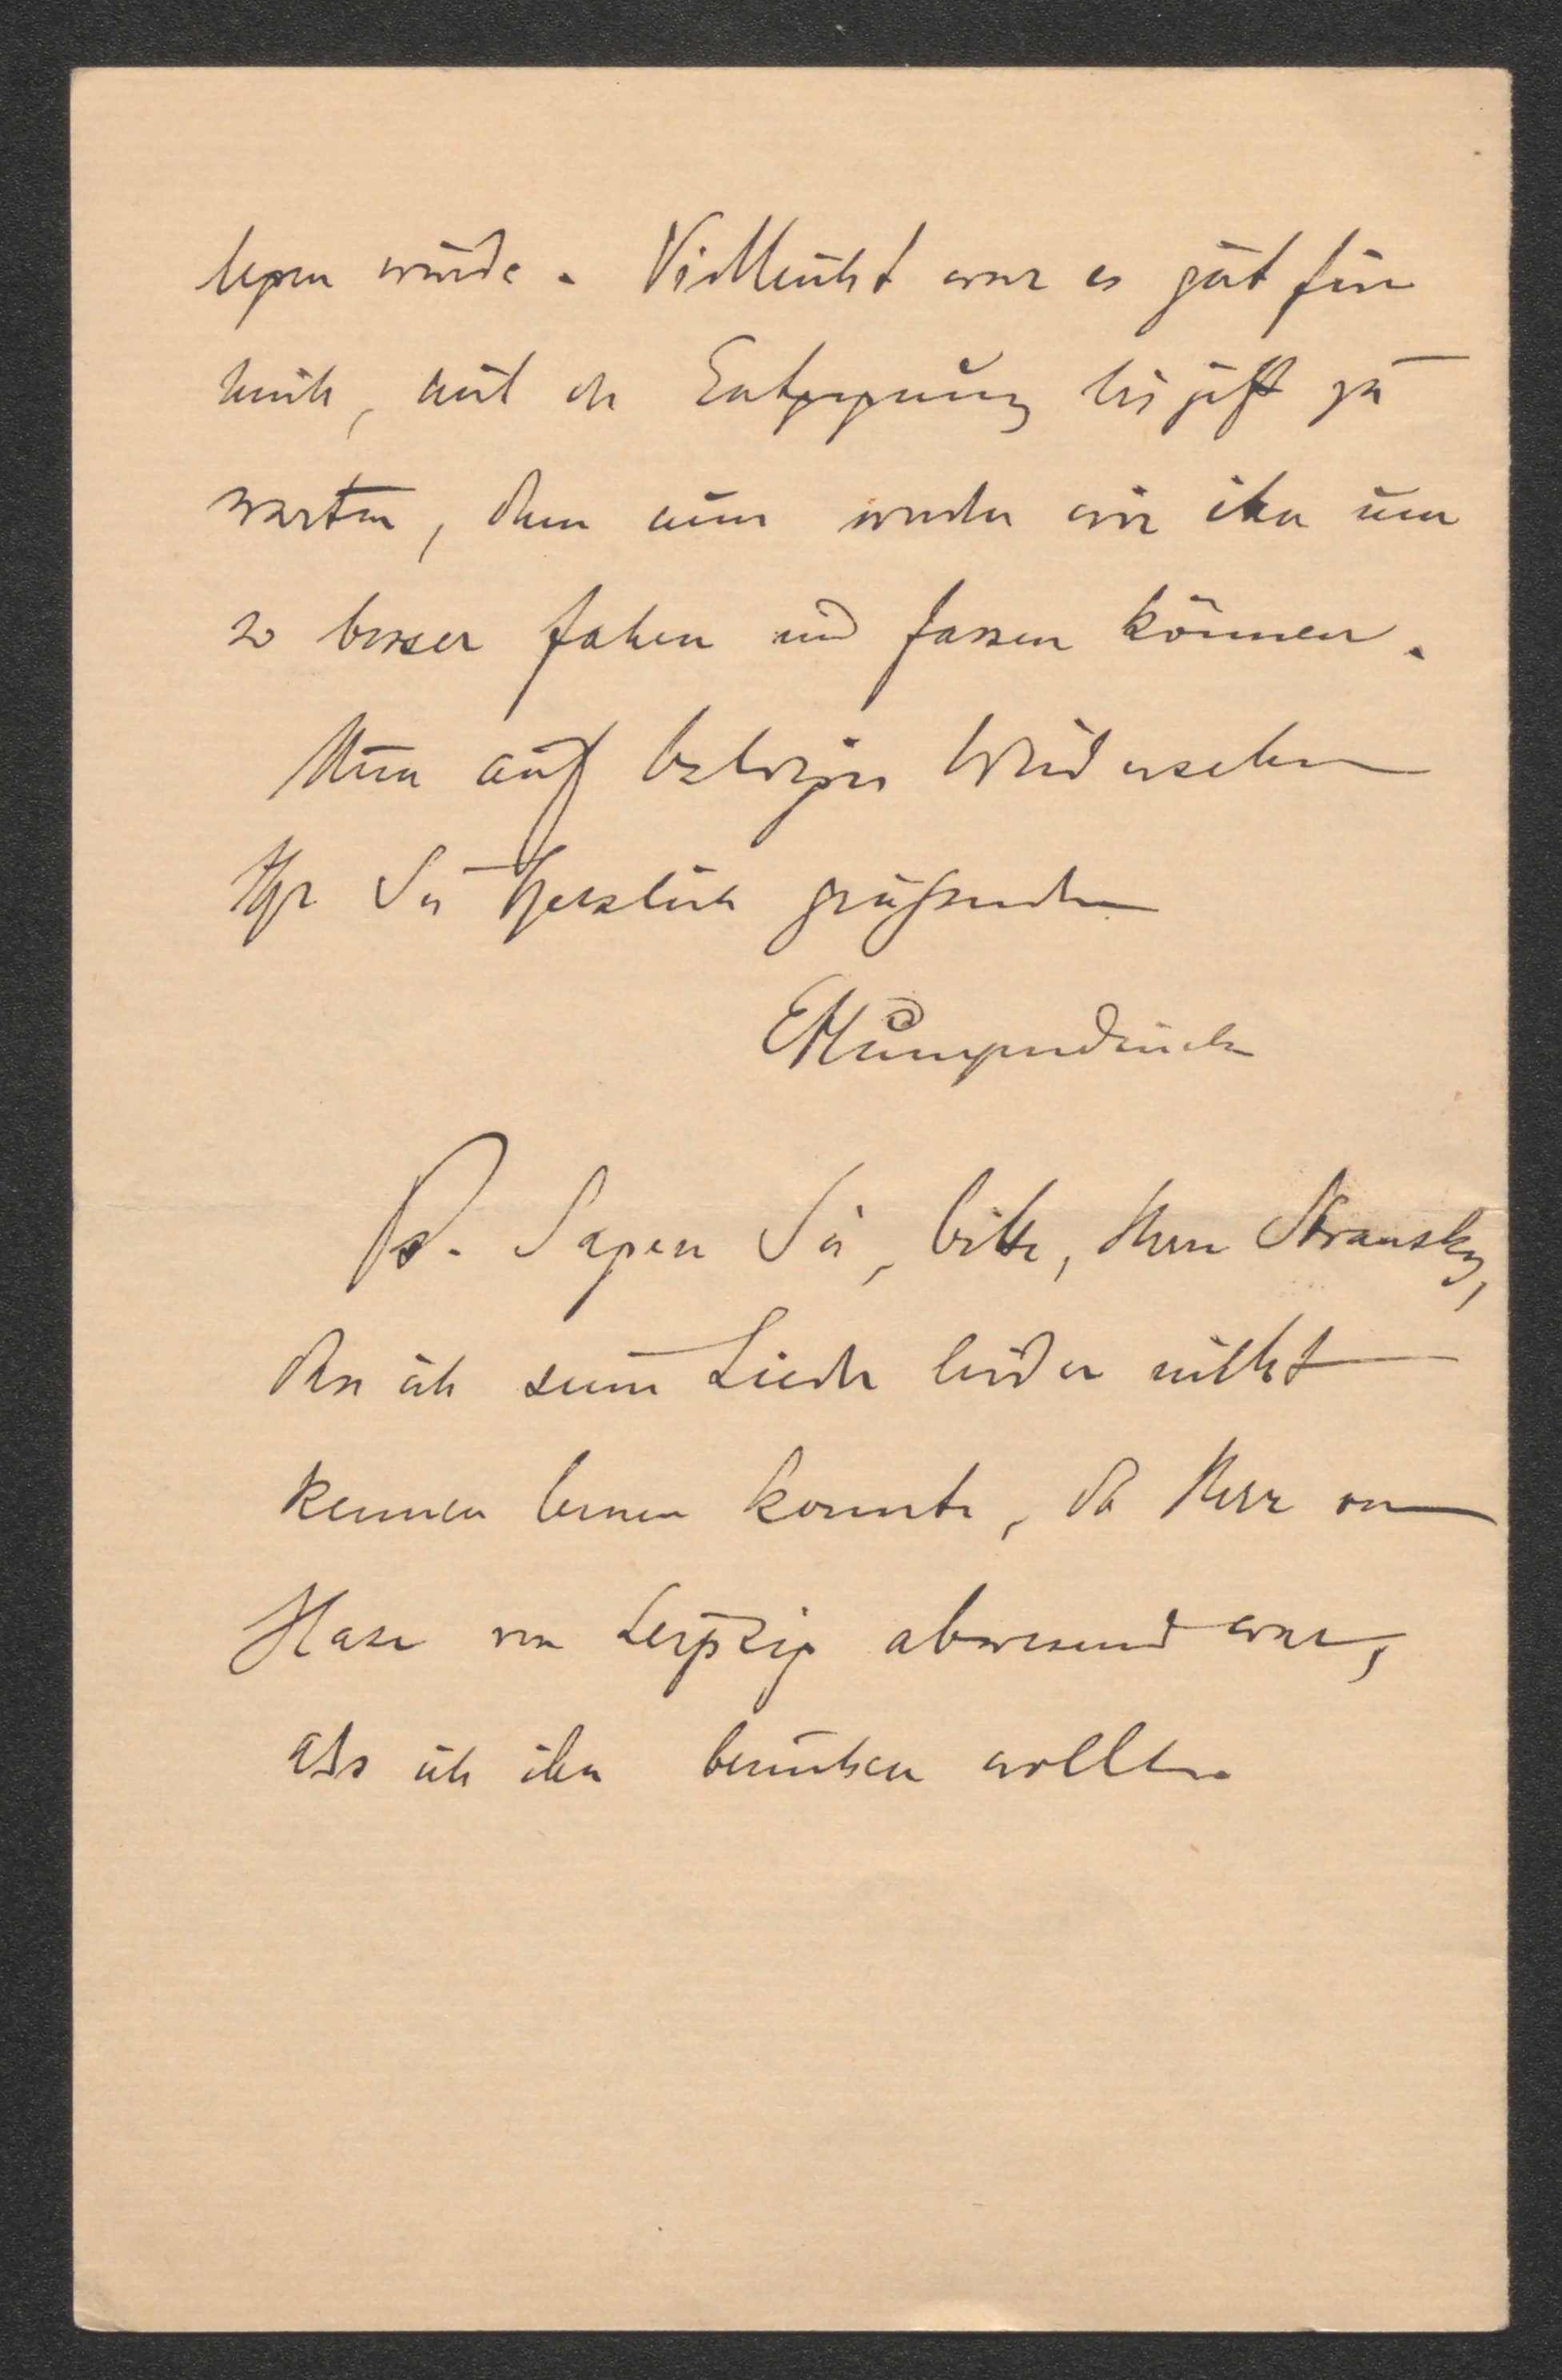 legen würde. Vielleicht war es gut für
mich, mit der Entgegnung bis jetzt zu
warten, denn nun werden wir ihn um
so besser fassen können.
Nun auf baldiges Wiedersehen
Ihr Sie herzlich grüßender
EHumperdinck
Ps. Sagen Sie, bitte, Herrn Stransky,
dass ich seine Lieder leider nicht
kennen lernen konnte, da Herr von
Hase von Leipzig abwesend war,
als ich ihn besuchen wollte.